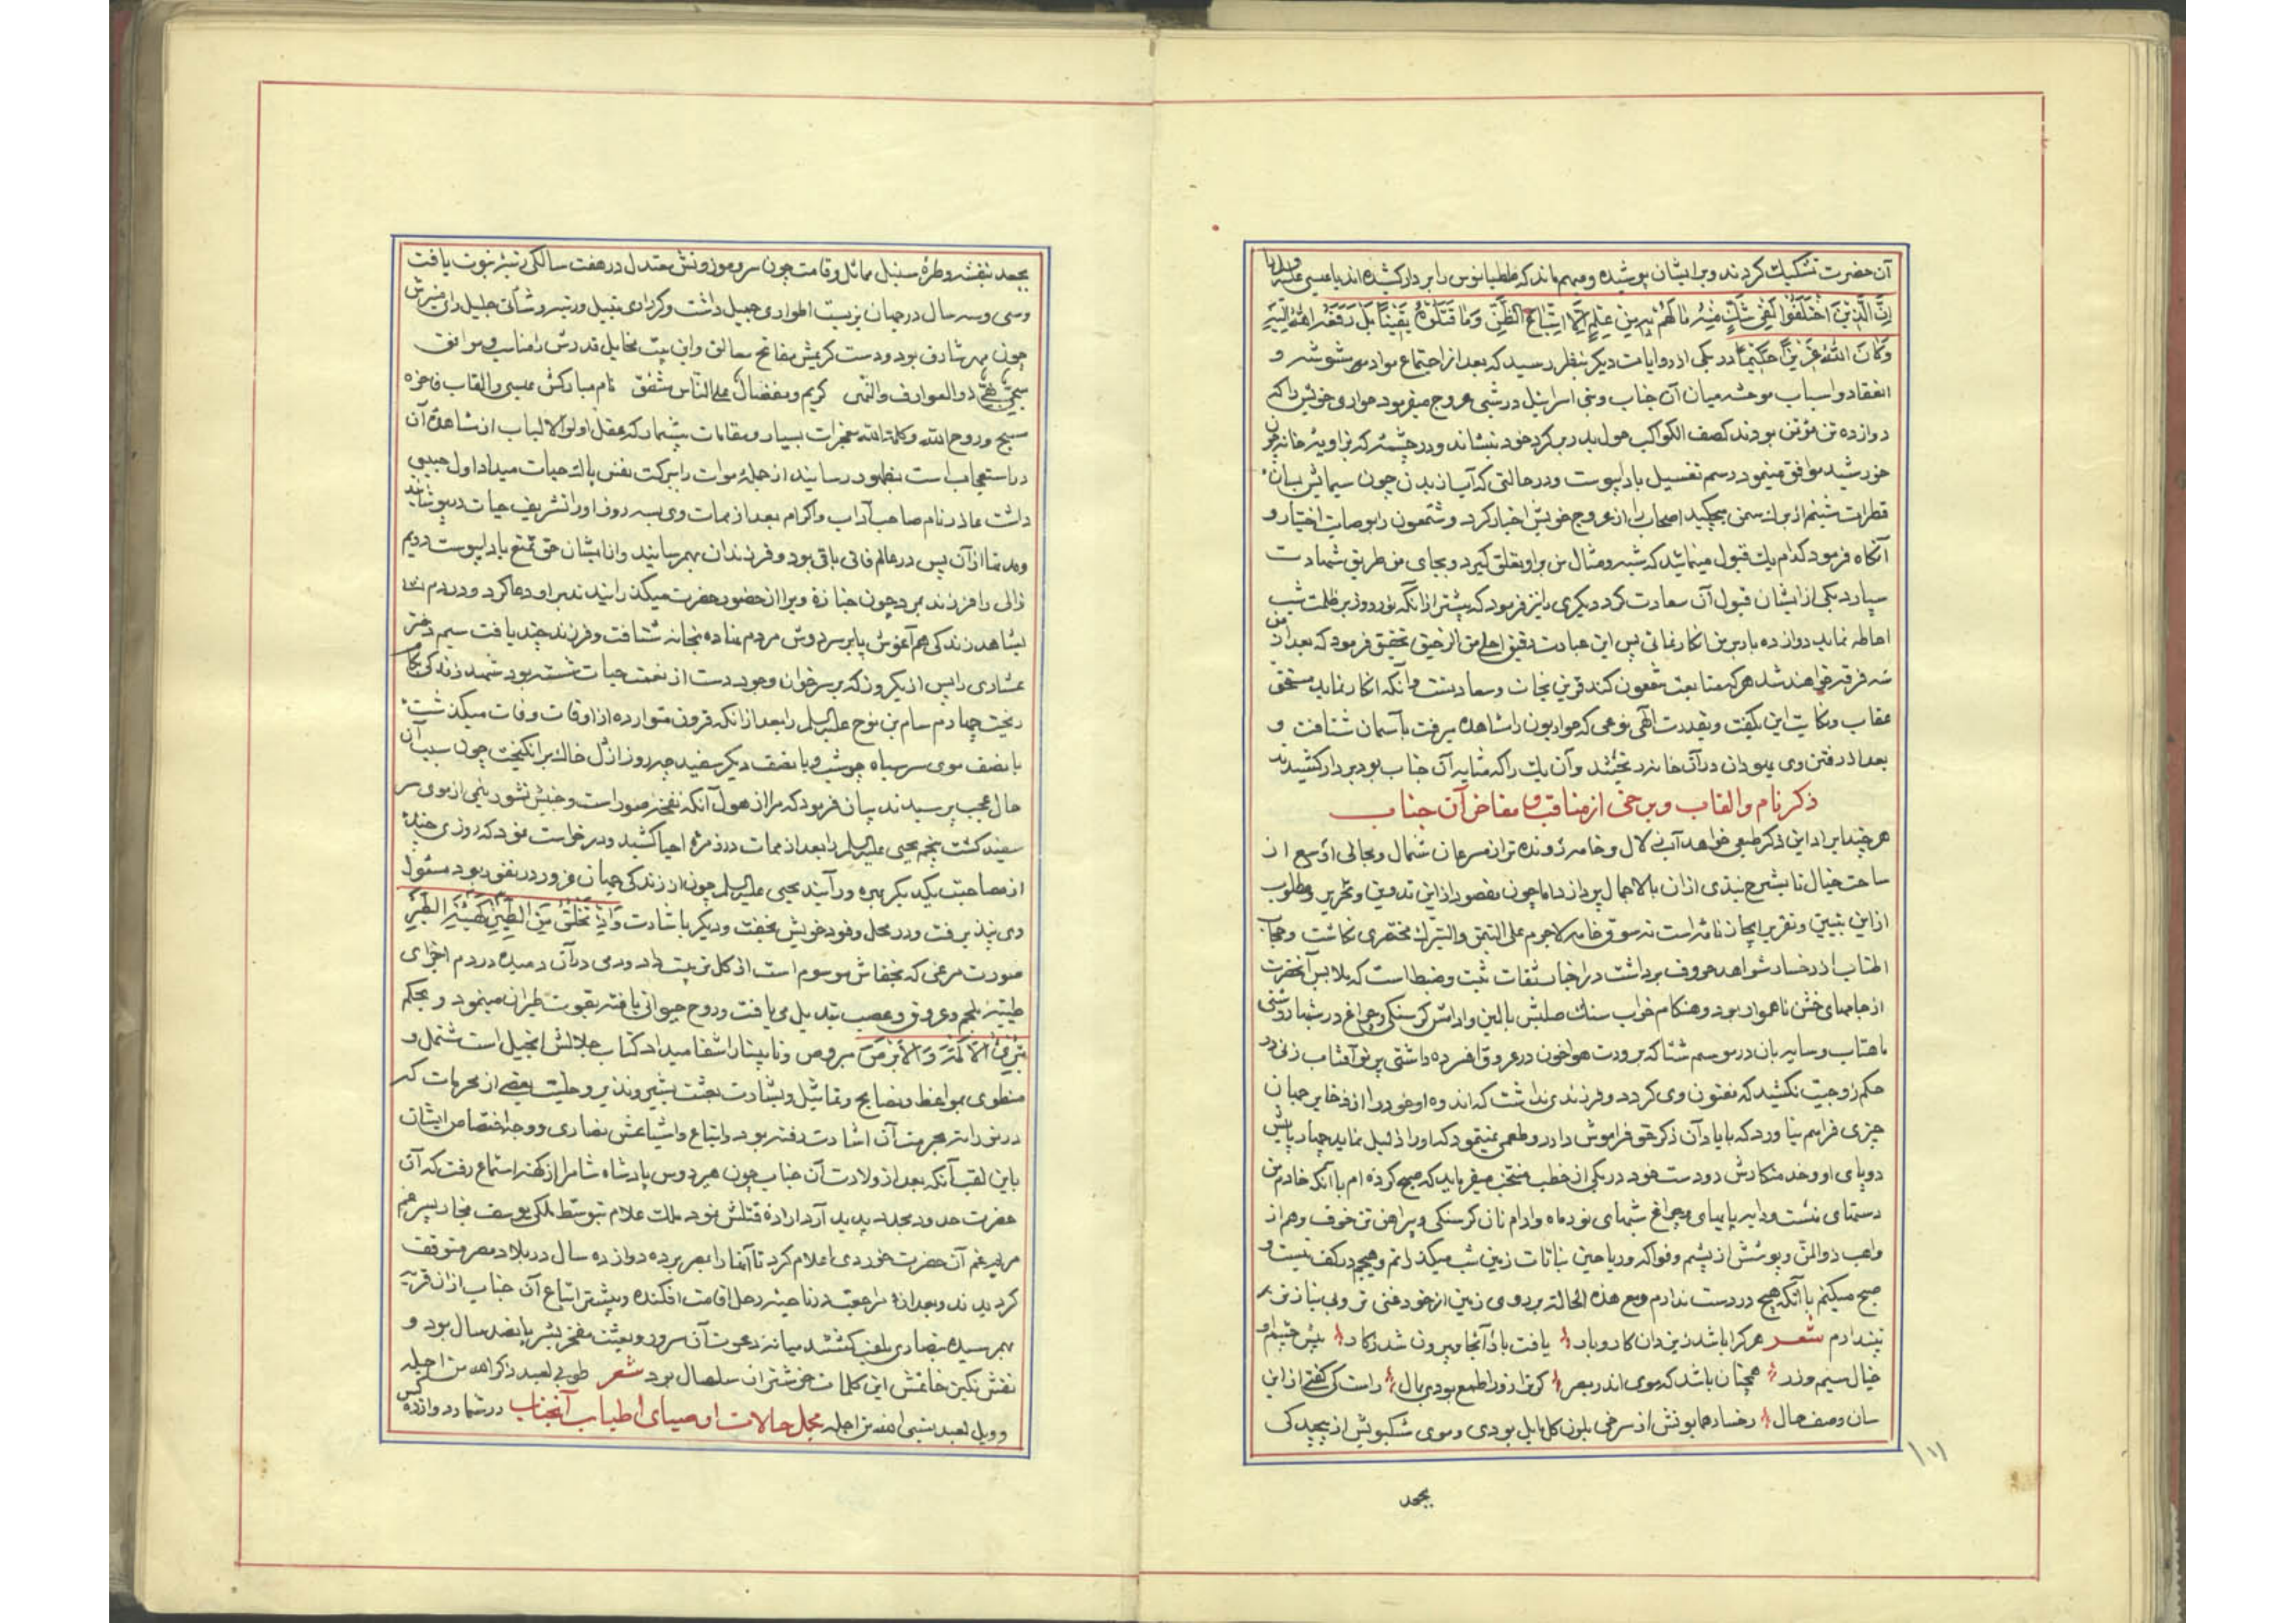 آن حضرت تشکیک کردند و بر ایشان پوشیده و مبهم ماند که ططیانوس را بر دار کشیده‌اند یا عیسی علیه
إِنَّ الَّذِینَ اخْتَلَفُوا لَفِی شَكٍّ مِنْهُ مَا لَهُمْ بِهِ مِنْ عِلْمٍ إِلَّا اتِّبَاعَ الظَّنِّ وَمَا قَتَلُوهُ یَقِینًا بَلْ رَفَعَهُ اللهُ إِلَیْهِ
وَكَانَ اللهُ عَزِیزًا حَكِیمًا در یکی از روایات دیگر بنظر رسید که بعد از اجتماع مواد مشوشه و
انعقاد و اسباب موحشه میان آن جناب و بنی اسرائیل در شبی عروج میفرمود حواری خویش را که
دوازده تن مؤتمن بودند کصف الکواکب حول بدر بگرد خود بنشاند و در چشمه که بزاویه خانه چون
خورشید موافق مینمود رسم تغسیل بادا پیوست و در حالتی که آب از بدن چون سیمایش بسان
قطرات شبنم از برگ سمن میچکید اصحاب را از عروج خویش اخبار کرد و شمعون را بوصایت اختیار و
آنگاه فرمود کدام یك قبول مینمائید که شبه و مثال من بر او تعلق گیرد و بجای من طریق شهادت
سپارد یکی از ایشان قبول آن سعادت کرد دیگری را نیز فرمود که پیشتر از انکه نور روز بر ظلمت شب
احاطه نماید دوازده بار بر من انکار نمائی پس این عبارت دقیق احلی من الرحیق تحقیق فرمود که بعد از من
سه فرقه خواهند شد هر که متابعت شمعون کند قرین نجات و سعادتست و آنکه انکار نماید مستحق
عقاب و نکایت این بگفت و بقدرت الهی نوعی که حواریون را مشاهده میرفت بآسمان شتافت و
بعد از رفتن وی یهودان در آن خانه ریختند و آن یك را که مشابه آن جناب بود بر دار کشیدند
ذکر نام و القاب و برخی از مناقب و مفاخر آن جناب
هر چند ایراد این ذکر طبعی خواهد آب زلال و خامه رونده‌تر از سرعان شمال و مجالی اوسع از
ساحت خیال تا بشرح نبذی از ان بالاجمال پردازد اما چون مقصود از این تدوین و تحریر و مطلوب
از این تبیین و تقریر ایجاز نامه است نه سوق خامه لاجرم علی التیمن و التبرك مختصری نگاشت و حجاب
از رخسار شواهد حروف برداشت در اخبار ثقات ثبت و ضبط است که ملابس آنحضرت
از جامهای خشن ناهموار بود و هنگام خواب سنك صلبش بالین و ادامش گرسنگی و چراغ در شبها روشنی
ماهتاب و سایه‌بان در موسم شتا که برودت هوا خون در عروق افسرده داشتی پرتو آفتاب زنی در
حکم زوجیت نکشید که مفتون وی گردد و فرزندی نداشت که اندوه او خورد از ذخایر جهان
چیزی فراهم نیاورد که با یاد آن ذکر حق فراموش دارد و طمعی نمینمود که او را ذلیل نماید چهارپایش
دو پای او و خدمتکارش دو دست خود در یکی از خطب منتخب میفرماید که صبح کرده‌ام با آنکه خادم من
دستهای منست و دابه پایهای و چراغ شبهای نور ماه و ادام نان گرسنگی و پیراهن تن خوف و هم از
واهب ذوالمن و پوشش از پشم و فواکه و ریاحین نباتات زمین شب میگذرانم و هیچم در کف نیست و
صبح میکنم با آنکه هیچ در دست ندارم و مع هذه الحالة بر روی زمین از خود غنی‌تر و بی نیازتر
نپندارم شعر هر کرا باشد ز یزدان کار و بار یافت بار آنجا و بیرون شد ز کار پیش چشم او
خیال سیم و زر همچنان باشد که موی اندر بصر گر ترازو را طمع بودی بمال راست کی گفتی
سان وصف حال رخسار همایونش از سرخی بلون گل مایل بودی و موی مشکبویش از پیچیدگی
١١١
بجعد
بجعد بنفشه و طره سنبل مماثل و قامت چون سرو موزونش معتدل در هفت سالگی رتبه نبوت یافت
و سی و سه سال در جهان بزیست اطواری جمیل داشت و کرداری نبیل و رتبه و شأنی جلیل رای منیرش
چون مهر شارق بود و دست کریمش مفاتح مغالق و این بیت مخایل قدرش را مناسب و موافق
ذو العوارف والنهی کریم و مفضال علی الناس مشفق نام مبارکش عیسی و القاب فاخره
مسیح و روح الله و کلمة الله معجزات بسیار و مقامات بیشمار که عقل اولو الالباب از مشاهدۀ آن
در استعجاب است بظهور رسانید از جمله موات را ببرکت نفس پاك حیات میداد اول حبیبی
داشت عاذر نام صاحب آداب و اکرام بعد از ممات وی بسه روز او را تشریف حیات در پوشانید
و مدتها از آن پس در عالم فانی باقی بود و فرزندان بهمرسانید و از ایشان حق تمتع بادا پیوست دویم
زالی را فرزند بمرد چون جنازۀ ویرا از حضور حضرت میگذرانیدند بر او دعا کرد و در دم
بشاهد زندگی هم آغوش پا بر سر دوش مردم نهاده بخانه شتافت و فرزند چند یافت سیم دختر
عشاری را پس از یکروز که بر سر خوان وجود دست از نعمت حیات شسته بود شهد زندگی بکام
ریخت چهارم سام بن نوح علیه السلم را بعد از انکه قرون متوارده از اوقات وفات میگذشت
با نصف موی سر سیاه و با نصف دیگر سفید از گل خاك برانگیخت چون سبب آن
حال عجیب پرسیدند بیان فرمود که مرا از هول آنکه نفخه صور است و جنبش نشور نیمی از موی سر
سفید گشت پنجم یحیی علیه السلم را بعد از ممات در زمره احیا کشید و درخواست نمود که روزی چند
از مصاحبت یکدیگر بهره‌ور آیند یحیی علیه السلم چون از زندگی جهان غرور در نفور بود مسئول
وی نپذیرفت و در محل وقود خویش بخفت و دیگر باشارت وَإِذْ تَخْلُقُ مِنَ الطِّینِ كَهَیْئَةِ الطَّیْرِ
صورت مرغی که بخفاش موسوم است از گل ترتیب داد و دمی در آن دمید در دم اجزای
طینیه بلحم و عروق و عصب تبدیل می یافت و روح حیوانی یافته بقوت طیران مینمود و بحکم
تُبْرِئُ الْأَكْمَهَ وَالْأَبْرَصَ مبروص و نابینا را شفا میداد کتاب جلالش انجیل است مشتمل و
منطوی بمواعظ و نصایح و تماثیل و بشارت بعثت بشیر و نذیر و حلیت بعضی از محرمات که
در توراة بحرمت آن اشارت رفته بود و اتباع و اشیاعش نصاری و وجه اختصاص ایشان
باین لقب آنکه بعد از ولادت آن جناب چون هیردوس پادشاه شام را از کهنه استماع رفت که آن
حضرت حدود مجدد پدید آرد ارادۀ قتلش نمود ملك علام بتوسط ملکی یوسف نجار پسر عم
مریم عم آن حضرت خوردی اعلام کرد تا آنها را بمصر برده دوازده سال در بلاد مصر متوقف
گردیدند و بعد از مراجعت در ناحیه رحل اقامت افکنده و بیشتر اتباع آن جناب از ان قریه
بهمرسیده بنصاری ملقب گشتند میانه دعوت آن سرور و بعثت مفخر بشر پانصد سال بود و
نقش نگین خاتمش این کلمات خوشتر از سلسال بود شعر طوبی لعبد ذکر الله من اجله
و ویل لعبد نسی الله من اجله مجمل حالات اوصیای اطیاب آنجناب در شمار دوازده کس